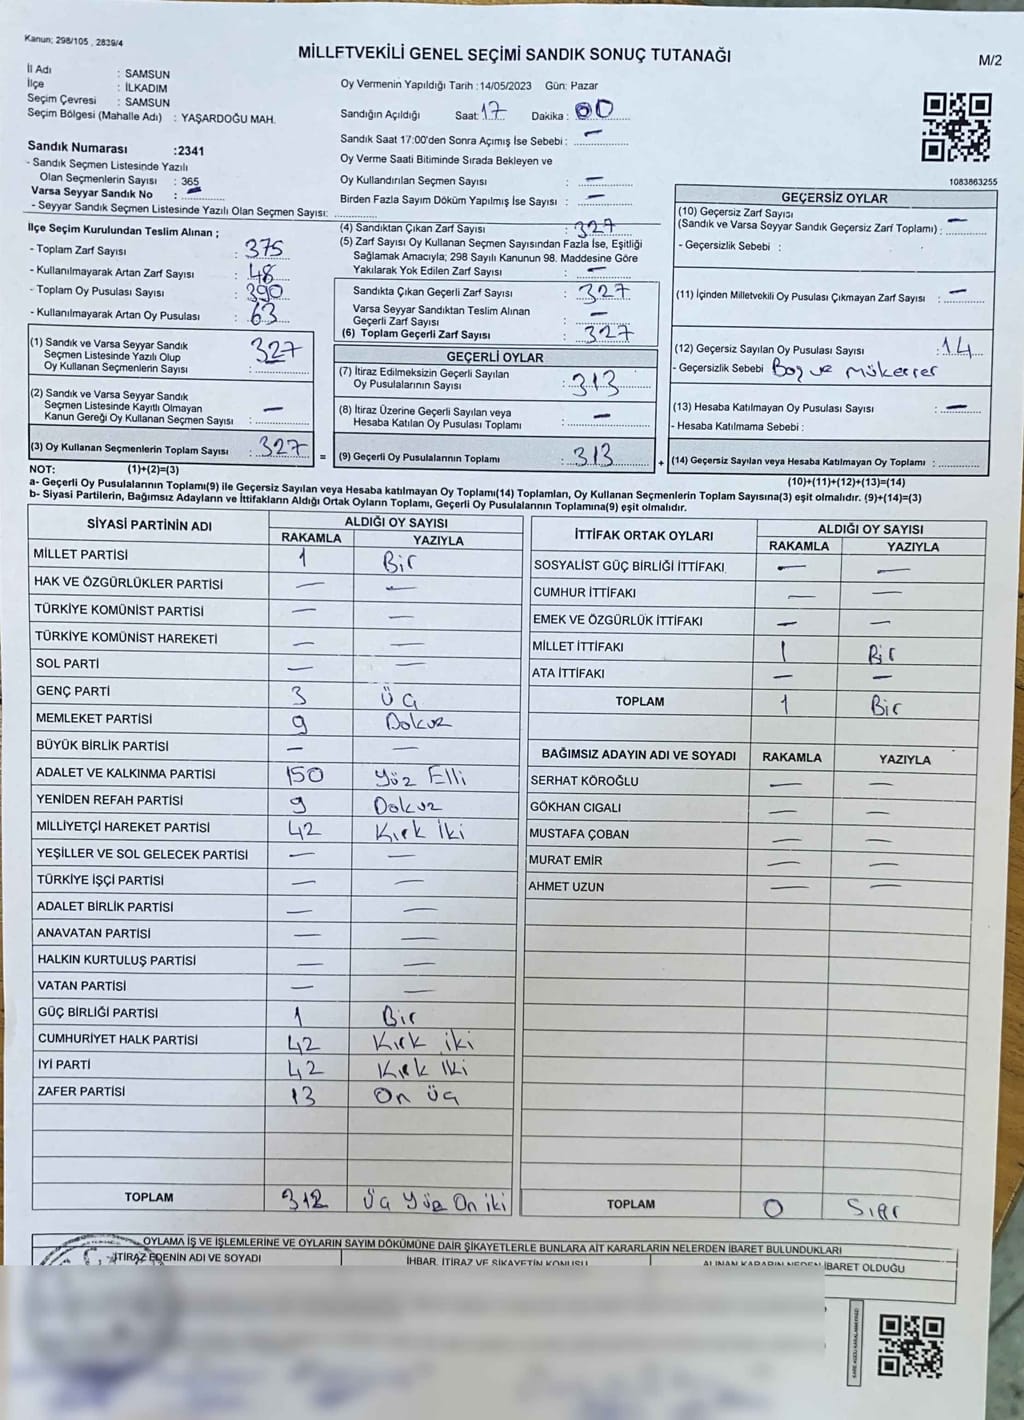 Kanun; 298/105 , 2839/4
MİLLETVEKİLİ GENEL SEÇİMİ SANDIK SONUÇ TUTANAĞI
M/2
İl Adı : SAMSUN
İlçe : İLKADIM
Seçim Çevresi : SAMSUN
Seçim Bölgesi (Mahalle Adı) : YAŞARDOĞU MAH.
Sandık Numarası :2341
- Sandık Seçmen Listesinde Yazılı
Olan Seçmenlerin Sayısı : 365
Varsa Seyyar Sandık No : —
- Seyyar Sandık Seçmen Listesinde Yazılı Olan Seçmen Sayısı:
Oy Vermenin Yapıldığı Tarih : 14/05/2023 Gün: Pazar
Sandığın Açıldığı Saat: 17 Dakika : 00
Sandık Saat 17:00'den Sonra Açımış İse Sebebi : —
Oy Verme Saati Bitiminde Sırada Bekleyen ve
Oy Kullandırılan Seçmen Sayısı : —
Birden Fazla Sayım Döküm Yapılmış İse Sayısı : —
1083863255
İlçe Seçim Kurulundan Teslim Alınan ;
- Toplam Zarf Sayısı : 375
- Kullanılmayarak Artan Zarf Sayısı : 48
- Toplam Oy Pusulası Sayısı : 390
- Kullanılmayarak Artan Oy Pusulası : 63
(1) Sandık ve Varsa Seyyar Sandık
Seçmen Listesinde Yazılı Olup
Oy Kullanan Seçmenlerin Sayısı : 327
(2) Sandık ve Varsa Seyyar Sandık
Seçmen Listesinde Kayıtlı Olmayan
Kanun Gereği Oy Kullanan Seçmen Sayısı : —
(3) Oy Kullanan Seçmenlerin Toplam Sayısı : 327
(4) Sandıktan Çıkan Zarf Sayısı : 327
(5) Zarf Sayısı Oy Kullanan Seçmen Sayısından Fazla İse, Eşitliği
Sağlamak Amacıyla; 298 Sayılı Kanunun 98. Maddesine Göre
Yakılarak Yok Edilen Zarf Sayısı : —
Sandıkta Çıkan Geçerli Zarf Sayısı : 327
Varsa Seyyar Sandıktan Teslim Alınan
Geçerli Zarf Sayısı : —
(6) Toplam Geçerli Zarf Sayısı : 327
GEÇERLİ OYLAR
(7) İtiraz Edilmeksizin Geçerli Sayılan
Oy Pusulalarının Sayısı : 313
(8) İtiraz Üzerine Geçerli Sayılan veya
Hesaba Katılan Oy Pusulası Toplamı : —
= (9) Geçerli Oy Pusulalarının Toplamı : 313
GEÇERSİZ OYLAR
(10) Geçersiz Zarf Sayısı
(Sandık ve Varsa Seyyar Sandık Geçersiz Zarf Toplamı) : —
- Geçersizlik Sebebi :
(11) İçinden Milletvekili Oy Pusulası Çıkmayan Zarf Sayısı : —
(12) Geçersiz Sayılan Oy Pusulası Sayısı : 14
- Geçersizlik Sebebi Boş ve Mükerrer
(13) Hesaba Katılmayan Oy Pusulası Sayısı : —
- Hesaba Katılmama Sebebi :
+ (14) Geçersiz Sayılan veya Hesaba Katılmayan Oy Toplamı :
NOT: (1)+(2)=(3)
(10)+(11)+(12)+(13)=(14)
a- Geçerli Oy Pusulalarının Toplamı(9) ile Geçersiz Sayılan veya Hesaba katılmayan Oy Toplamı(14) Toplamları, Oy Kullanan Seçmenlerin Toplam Sayısına(3) eşit olmalıdır. (9)+(14)=(3)
b- Siyasi Partilerin, Bağımsız Adayların ve İttifakların Aldığı Ortak Oyların Toplamı, Geçerli Oy Pusulalarının Toplamına(9) eşit olmalıdır.
SİYASİ PARTİNİN ADI ALDIĞI OY SAYISI
RAKAMLA YAZIYLA
MİLLET PARTİSİ 1 Bir
HAK VE ÖZGÜRLÜKLER PARTİSİ — —
TÜRKİYE KOMÜNİST PARTİSİ — —
TÜRKİYE KOMÜNİST HAREKETİ — —
SOL PARTİ — —
GENÇ PARTİ 3 Üç
MEMLEKET PARTİSİ 9 Dokuz
BÜYÜK BİRLİK PARTİSİ — —
ADALET VE KALKINMA PARTİSİ 150 Yüz Elli
YENİDEN REFAH PARTİSİ 9 Dokuz
MİLLİYETÇİ HAREKET PARTİSİ 42 Kırk İki
YEŞİLLER VE SOL GELECEK PARTİSİ — —
TÜRKİYE İŞÇİ PARTİSİ — —
ADALET BİRLİK PARTİSİ — —
ANAVATAN PARTİSİ — —
HALKIN KURTULUŞ PARTİSİ — —
VATAN PARTİSİ — —
GÜÇ BİRLİĞİ PARTİSİ 1 Bir
CUMHURİYET HALK PARTİSİ 42 Kırk iki
İYİ PARTİ 42 Kırk İki
ZAFER PARTİSİ 13 On üç
TOPLAM 312 Üç Yüz On iki
İTTİFAK ORTAK OYLARI ALDIĞI OY SAYISI
RAKAMLA YAZIYLA
SOSYALİST GÜÇ BİRLİĞİ İTTİFAKI — —
CUMHUR İTTİFAKI — —
EMEK VE ÖZGÜRLÜK İTTİFAKI — —
MİLLET İTTİFAKI 1 Bir
ATA İTTİFAKI — —
TOPLAM 1 Bir
BAĞIMSIZ ADAYIN ADI VE SOYADI RAKAMLA YAZIYLA
SERHAT KÖROĞLU — —
GÖKHAN CIGALI — —
MUSTAFA ÇOBAN — —
MURAT EMİR — —
AHMET UZUN — —
TOPLAM 0 Sıfır
OYLAMA İŞ VE İŞLEMLERİNE VE OYLARIN SAYIM DÖKÜMÜNE DAİR ŞİKAYETLERLE BUNLARA AİT KARARLARIN NELERDEN İBARET BULUNDUKLARI
İTİRAZ EDENİN ADI VE SOYADI
İHBAR, İTİRAZ VE ŞİKAYETİN KONUSU
ALINAN KARARIN NEDEN İBARET OLDUĞU